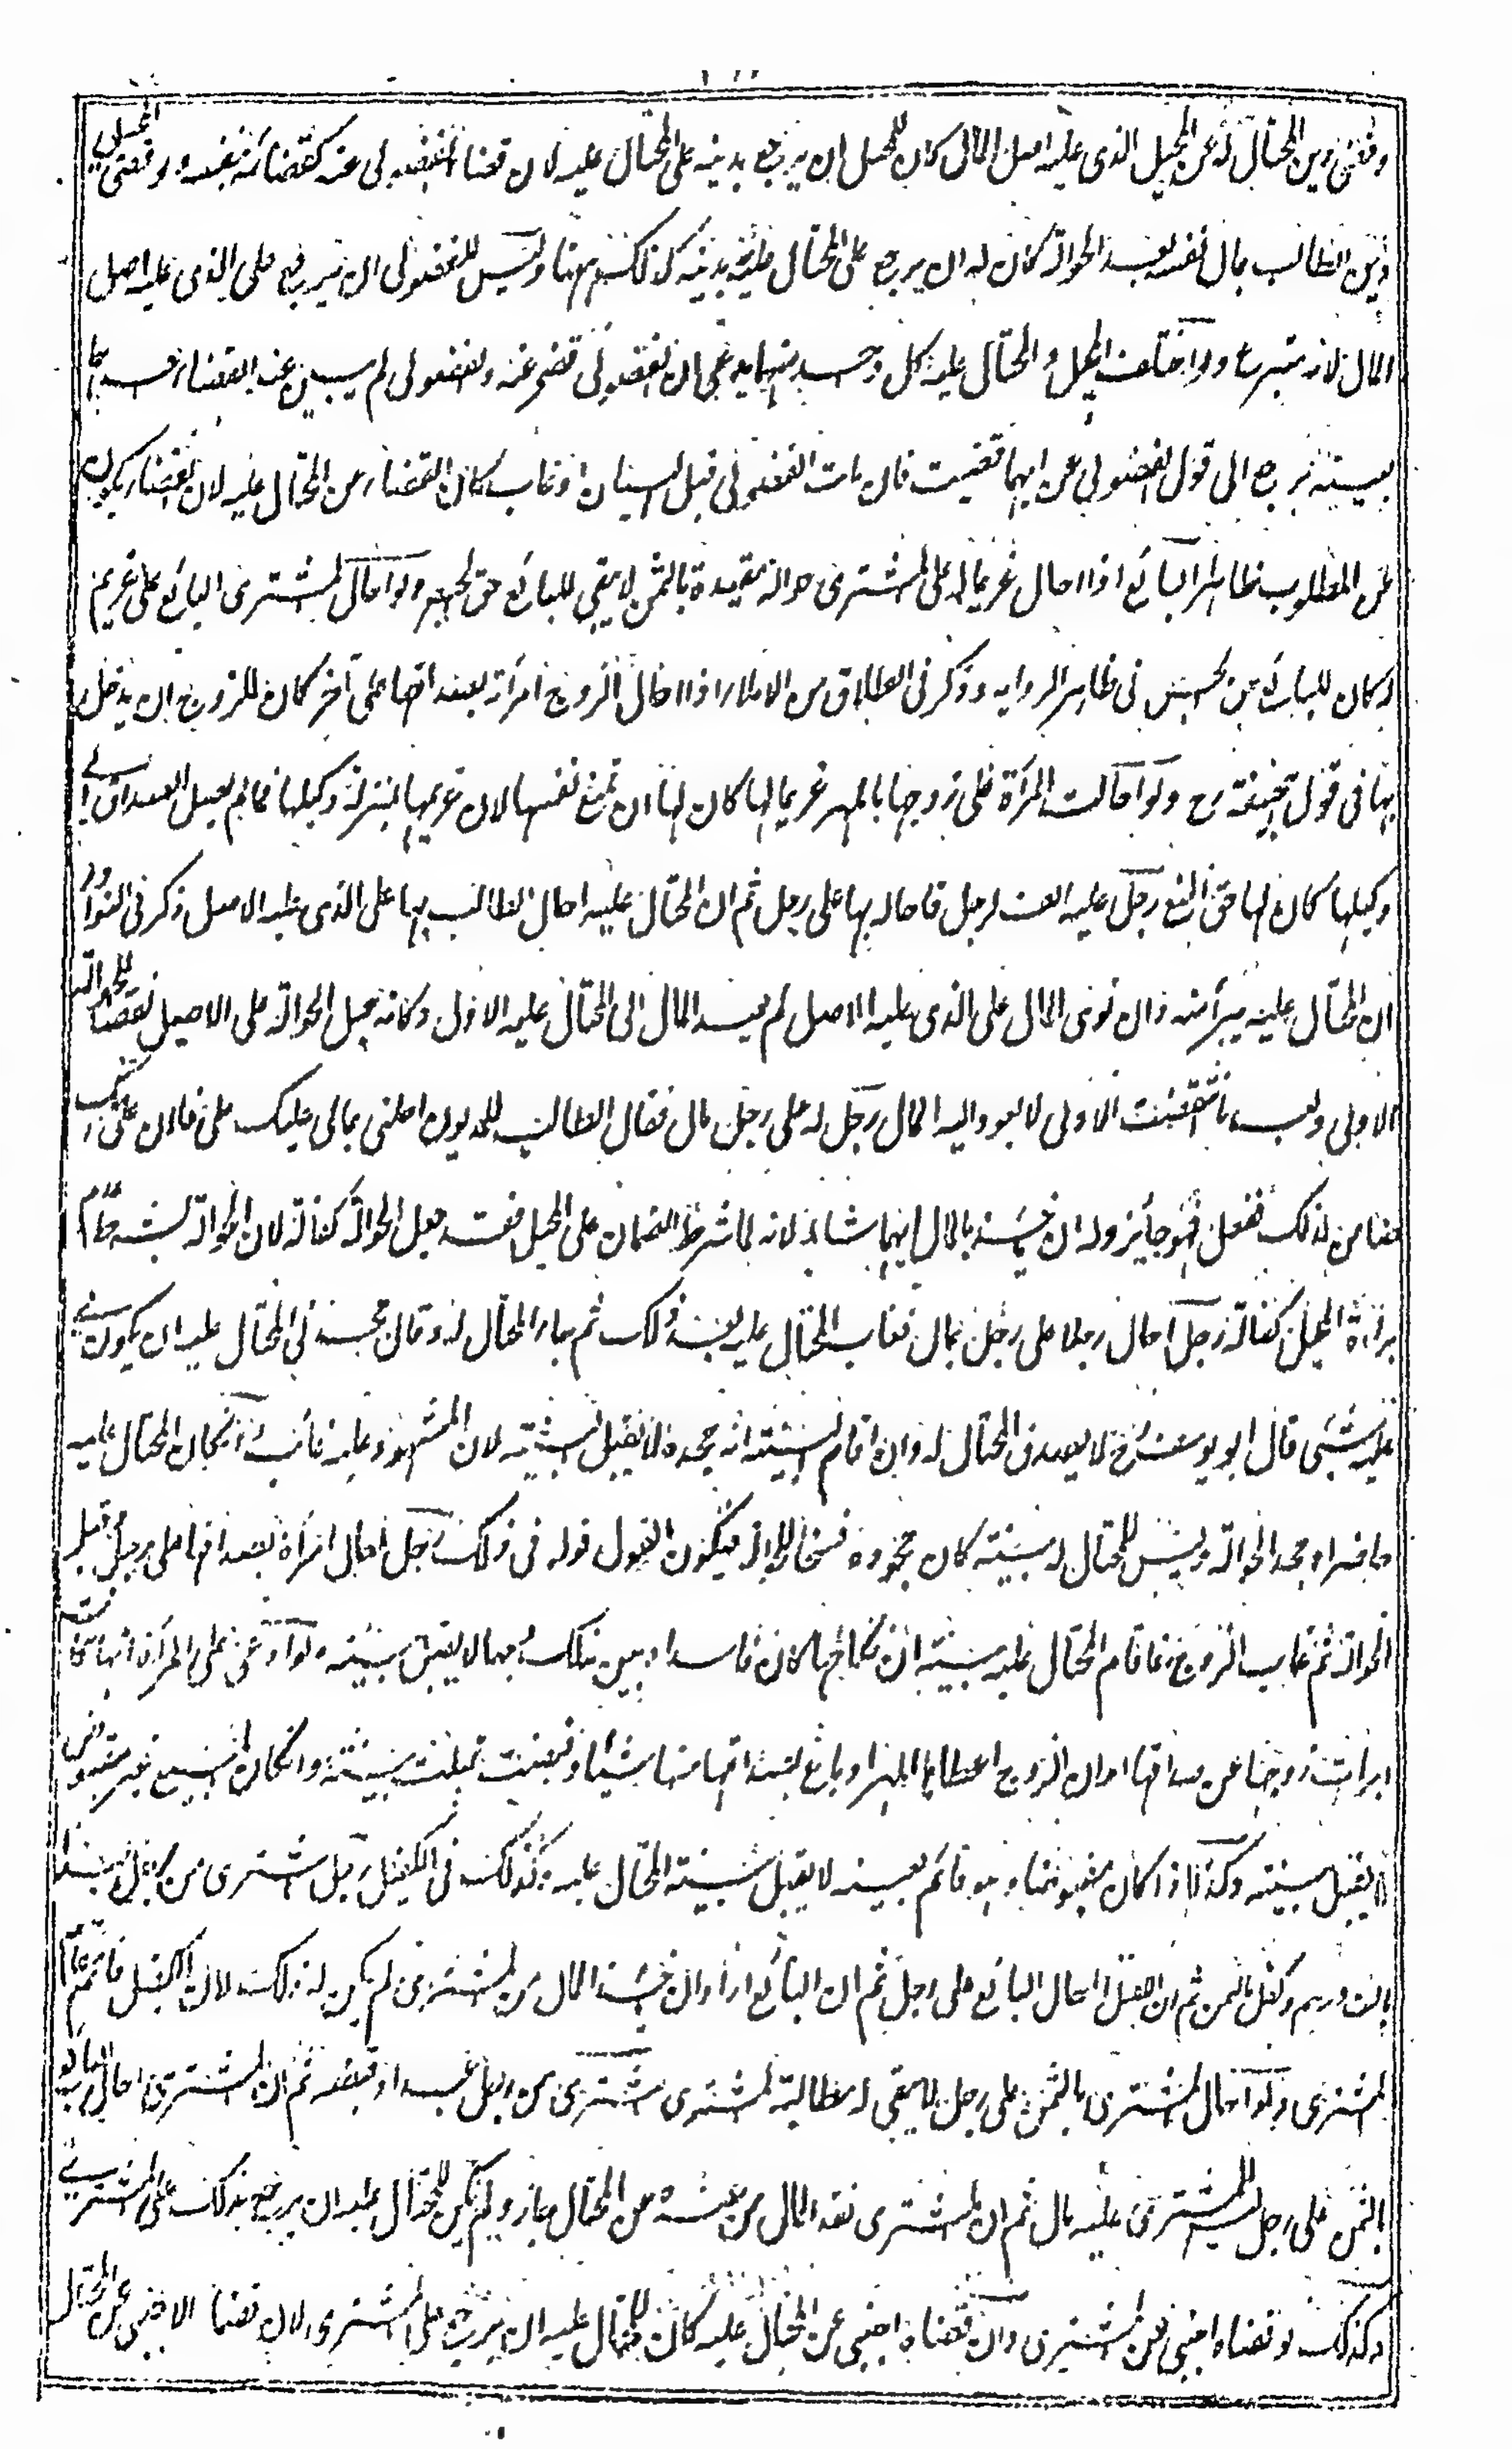 وقضى دين المحتال له عن المحيل الذى عليه اصل المال كان للمحيل ان يرجع بدينه على المحتال عليه لان قضاء الفضولى عنه كقضائه بنفسه ولو قضى المحيل
دين الطالب بمال نفسه بعد الحوالة كان له ان يرجع على المحتال عليه بدينه كذلك ههنا وليس للفضولى ان يرجع على الذى عليه اصل
المال لانه متبرع ولو اختلف المحيل والمحتال عليه كل واحد منهما يدعى ان الفضولى قضى عنه والفضولى لم يبين عند القضاء احدهما
بعينه يرجع الى قول الفضولى عن ايهما قضيت فان مات الفضولى قبل البيان او غاب كان القضاء عن المحتال عليه لان القضاء يكون
عن المطلوب ظاهرا البائع اذا احال غريما له على المشترى حوالة مقيدة بالثمن لا يبقى للبائع حق الحبس ولو احال المشترى البائع على غريم
وكان للبائع حق الحبس فى ظاهر الرواية وذكر فى الطلاق من الاملاء اذا احال الزوج امرأته بصداقها على آخر كان للزوج ان يدخل
بها فى قول ابيحنيفة رح ولو احالت المرأة على زوجها بالمهر غريما لها كان لها ان تمنع نفسها لان غريمها بمنزلة وكيلها فما لم يصل الصداق الى
وكيلها كان لها حق المنع رجل عليه الف لرجل فاحاله بها على رجل ثم ان المحتال عليه احال الطالب بها على الذى عليه الاصل ذكر فى النوادر
ان المحتال عليه يبرأ منه وان توى المال على الذى عليه الاصل لم يعد المال الى المحتال عليه الاول وكانه يجعل الحوالة على الاصيل نقضا للحوالة
الاولى وبعد ما انتقضت الاولى لا يعود اليه المال رجل له على رجل مال فقال الطالب للمديون احلنى بمالى عليك على فلان على انك
ضامن لذلك ففعل فهو جائز وله ان يأخذ بالمال ايهما شاء لانه لما شرط الضمان على المحيل فقد جعل الحوالة كفالة لان الحوالة بشرط عدم
براءة المحيل كفالة رجل احال رجلا على رجل بمال فغاب المحتال عليه بعد ذلك ثم جاء المحتال له وقال جحدنى المحتال عليه ان يكون لى
عليه شئى قال ابو يوسف رح لا يصدق المحتال له وان اقام البينة انه جحده لا تقبل البينة لان المشهود عليه غائب وان كان المحتال عليه
حاضرا وجحد الحوالة وليس للمحتال له بينة كان جحوده فسخا للحوالة فيكون القول قوله فى ذلك رجل احال امرأة بصداقها على رجل وقبل
الحوالة ثم غاب الزوج فاقام المحتال عليه بينة ان نكاحها كان فاسدا وبين ذلك بوجهه لا يقبل بينته ولو ادعى على المرأة انها كانت
ابرأت زوجها عن صداقها او ان الزوج اعطاها المهر او باع بصداقها منها شيئا وقبضت قبلت بينته وان كان المبيع غير مقبوض
لا يقبل بينته وكذلك اذا كان مقبوضا وهو قائم بعينه لا يقبل بينة المحتال عليه وكذلك فى الكفيل رجل اشترى من رجل عبدا
بالف درهم وكفل بالثمن ثم ان الكفيل احال البائع على رجل ثم ان البائع اراد ان يأخذ المال من المشترى لم يكن له ذلك لان الكفيل قائم مقام
المشترى ولو احال المشترى بالثمن على رجل لا يبقى له مطالبة المشترى مشترى من رجل عبدا وقبضه ثم ان المشترى احال البائع
بالثمن على رجل للمشترى عليه مال ثم ان المشترى نقد المال من عنده عن المحتال جاز ولم يكن للمحتال عليه ان يرجع بذلك على المشترى
وكذلك لو قضاه اجنبى عن المشترى وان قضاه اجنبى عن المحتال عليه كان للمحتال عليه ان يرجع على المشترى لان قضاء الاجنبى عن المحتال